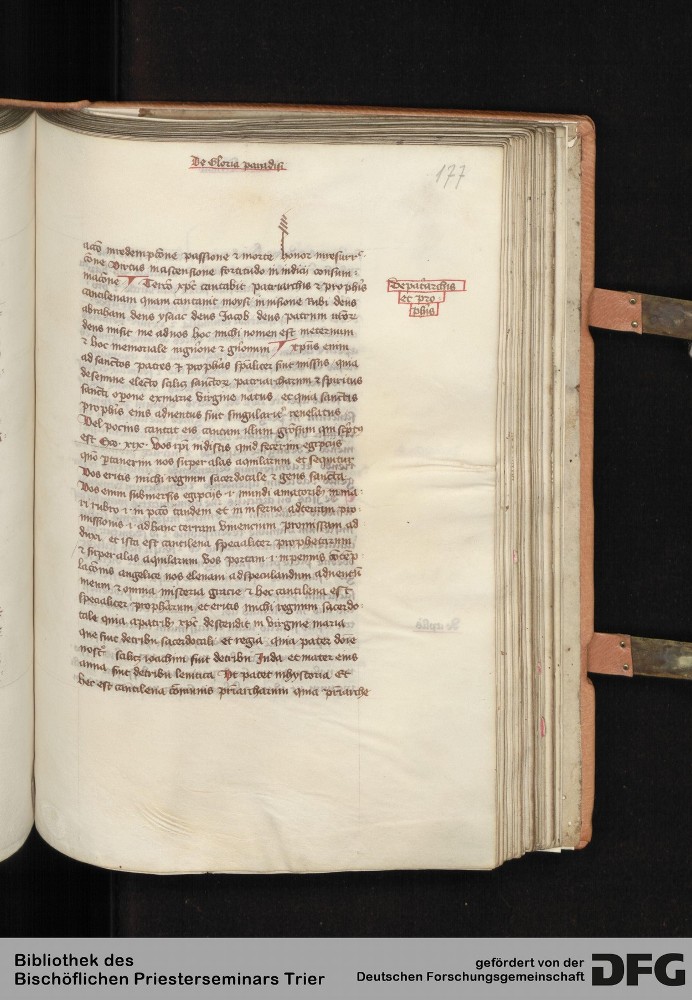 De Gloria paradisi
177
actō in redemptōne passione ⁊ morte honor in resurrᶜ
tōne Virtus in ascensione fortitudo in iudicii consum
matōne Tercō xp̄c cantabit patriarchis ⁊ proph̄is
cantilenam quam cantauit moysi in visione rubi deus
abraham deus ysaac deus Jacob deus patrum vr̄orum
deus misit me ad uos hoc michi nomen est in eternum
⁊ hoc memoriale in gn̄one ⁊ gn̄onum xp̄us enim
ad sanctos patres ⁊ proph̄as sp̄aliter fuit missus quia
de semine electo scilicet sanctoꝝ patriarcharum ⁊ spiritus
sancti oꝑone ex marie virgine natus et quia sanctis
proph̄is eius aduentus fuit singulariter reuelatus
Vel pocius cantat eis cantum illum qui scriptō
est Exo. xix. Vos ip̄i vidistis quid fecerim egypciis
quō portauerim uos super alas aquilarum et sequitur
Vos eritis michi regnum sacerdotale ⁊ gens sancta
Vos enim submersis egypciis .i. mundi amatoribus in ma
ri rubro .i. in pctō tandem et in inferno ad terram pro
missionis .i. ad hanc terram viuencium promissam ad
duxi et ista est cantilena specialiter prophetarum
⁊ super alas aquilarum vos portaui .i. in pennis
angelica uos eleuaui ad speculandum aduentū
meum ⁊ omnia misteria gracie ⁊ hec cantilena est
specialiter proph̄arum et eritis michi regnum sacerdo
tale quia a patribus xp̄c descendit in virgine maria
que fuit de tribu sacerdotali et regia quia pater
scilicet ioachim fuit de tribu Juda et mater eius
anna fuit de tribu leuitica Vt patet in hystoria Et
hec est cantilena cōmunis pr̄iarcharum quia pr̄iarche
De patriarchis
et pro
ph̄is
Bibliothek des
Bischöflichen Priesterseminars Trier
gefördert von der
Deutschen Forschungsgemeinschaft
DFG